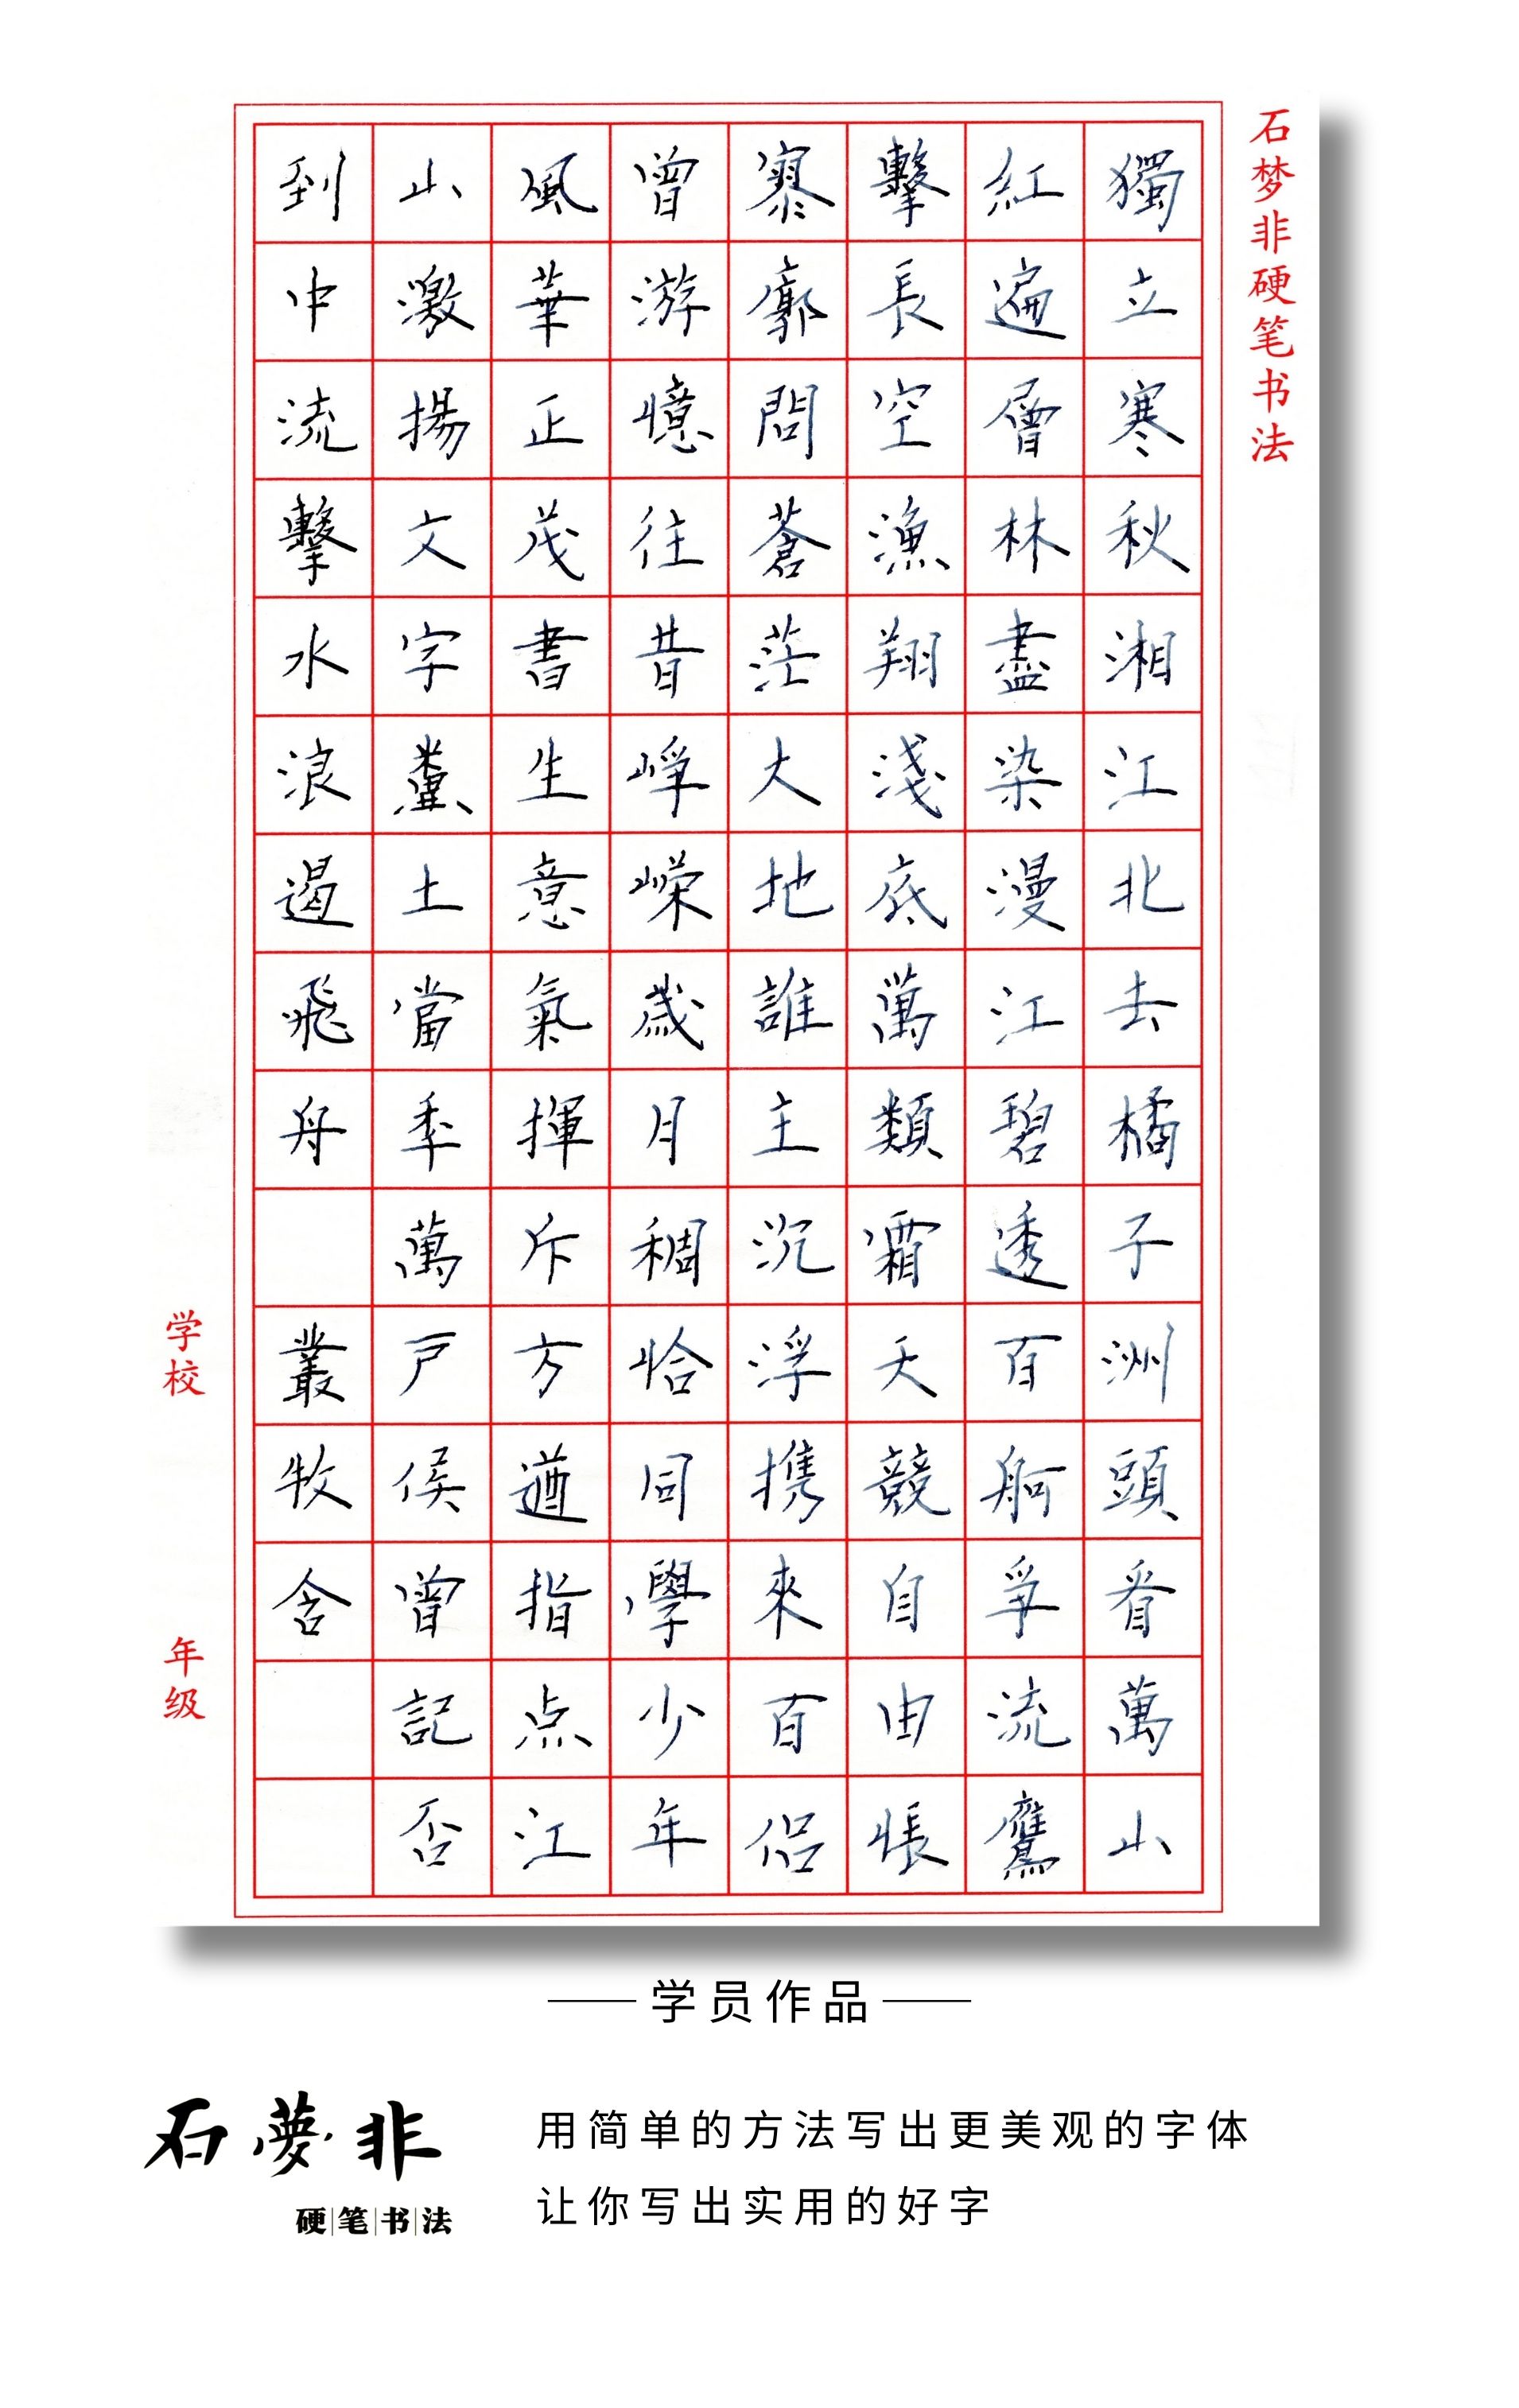 石梦非硬笔书法
獨立寒秋湘江北去橘子洲頭看萬山
紅遍層林盡染漫江碧透百舸爭流鷹
擊長空漁翔淺底萬類霜天競自由悵
寥廓問蒼茫大地誰主沉浮携來百侶
曾游憶往昔崢嶸歲月稠恰同學少年
風華正茂書生意氣揮斥方遒指点江
山激揚文字糞土當秊萬戶侯曾記否
到中流擊水浪遏飛舟 叢牧含
学校 年级
学员作品
石夢非
硬笔书法
用简单的方法写出更美观的字体
让你写出实用的好字